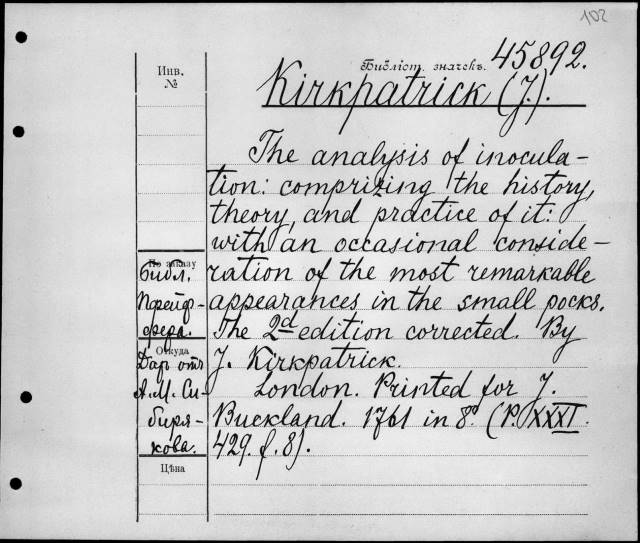 102
Инв.
№
Библіот. значекъ. 45892.
Kirkpatrick (J.).
The analysis of inocula-
tion: comprizing the history,
theory, and practice of it:
with an occasional conside-
ration of the most remarkable
appearances in the small pocks.
The 2d edition corrected. By
J. Kirkpatrick.
London. Printed for J.
Buckland. 1761 in 8º (P. XXXI.
429. f. 8).
По заказу
Библ.
Пфейф-
фера.
Откуда
Даръ отъ
А. М. Си-
биря-
кова.
Цѣна